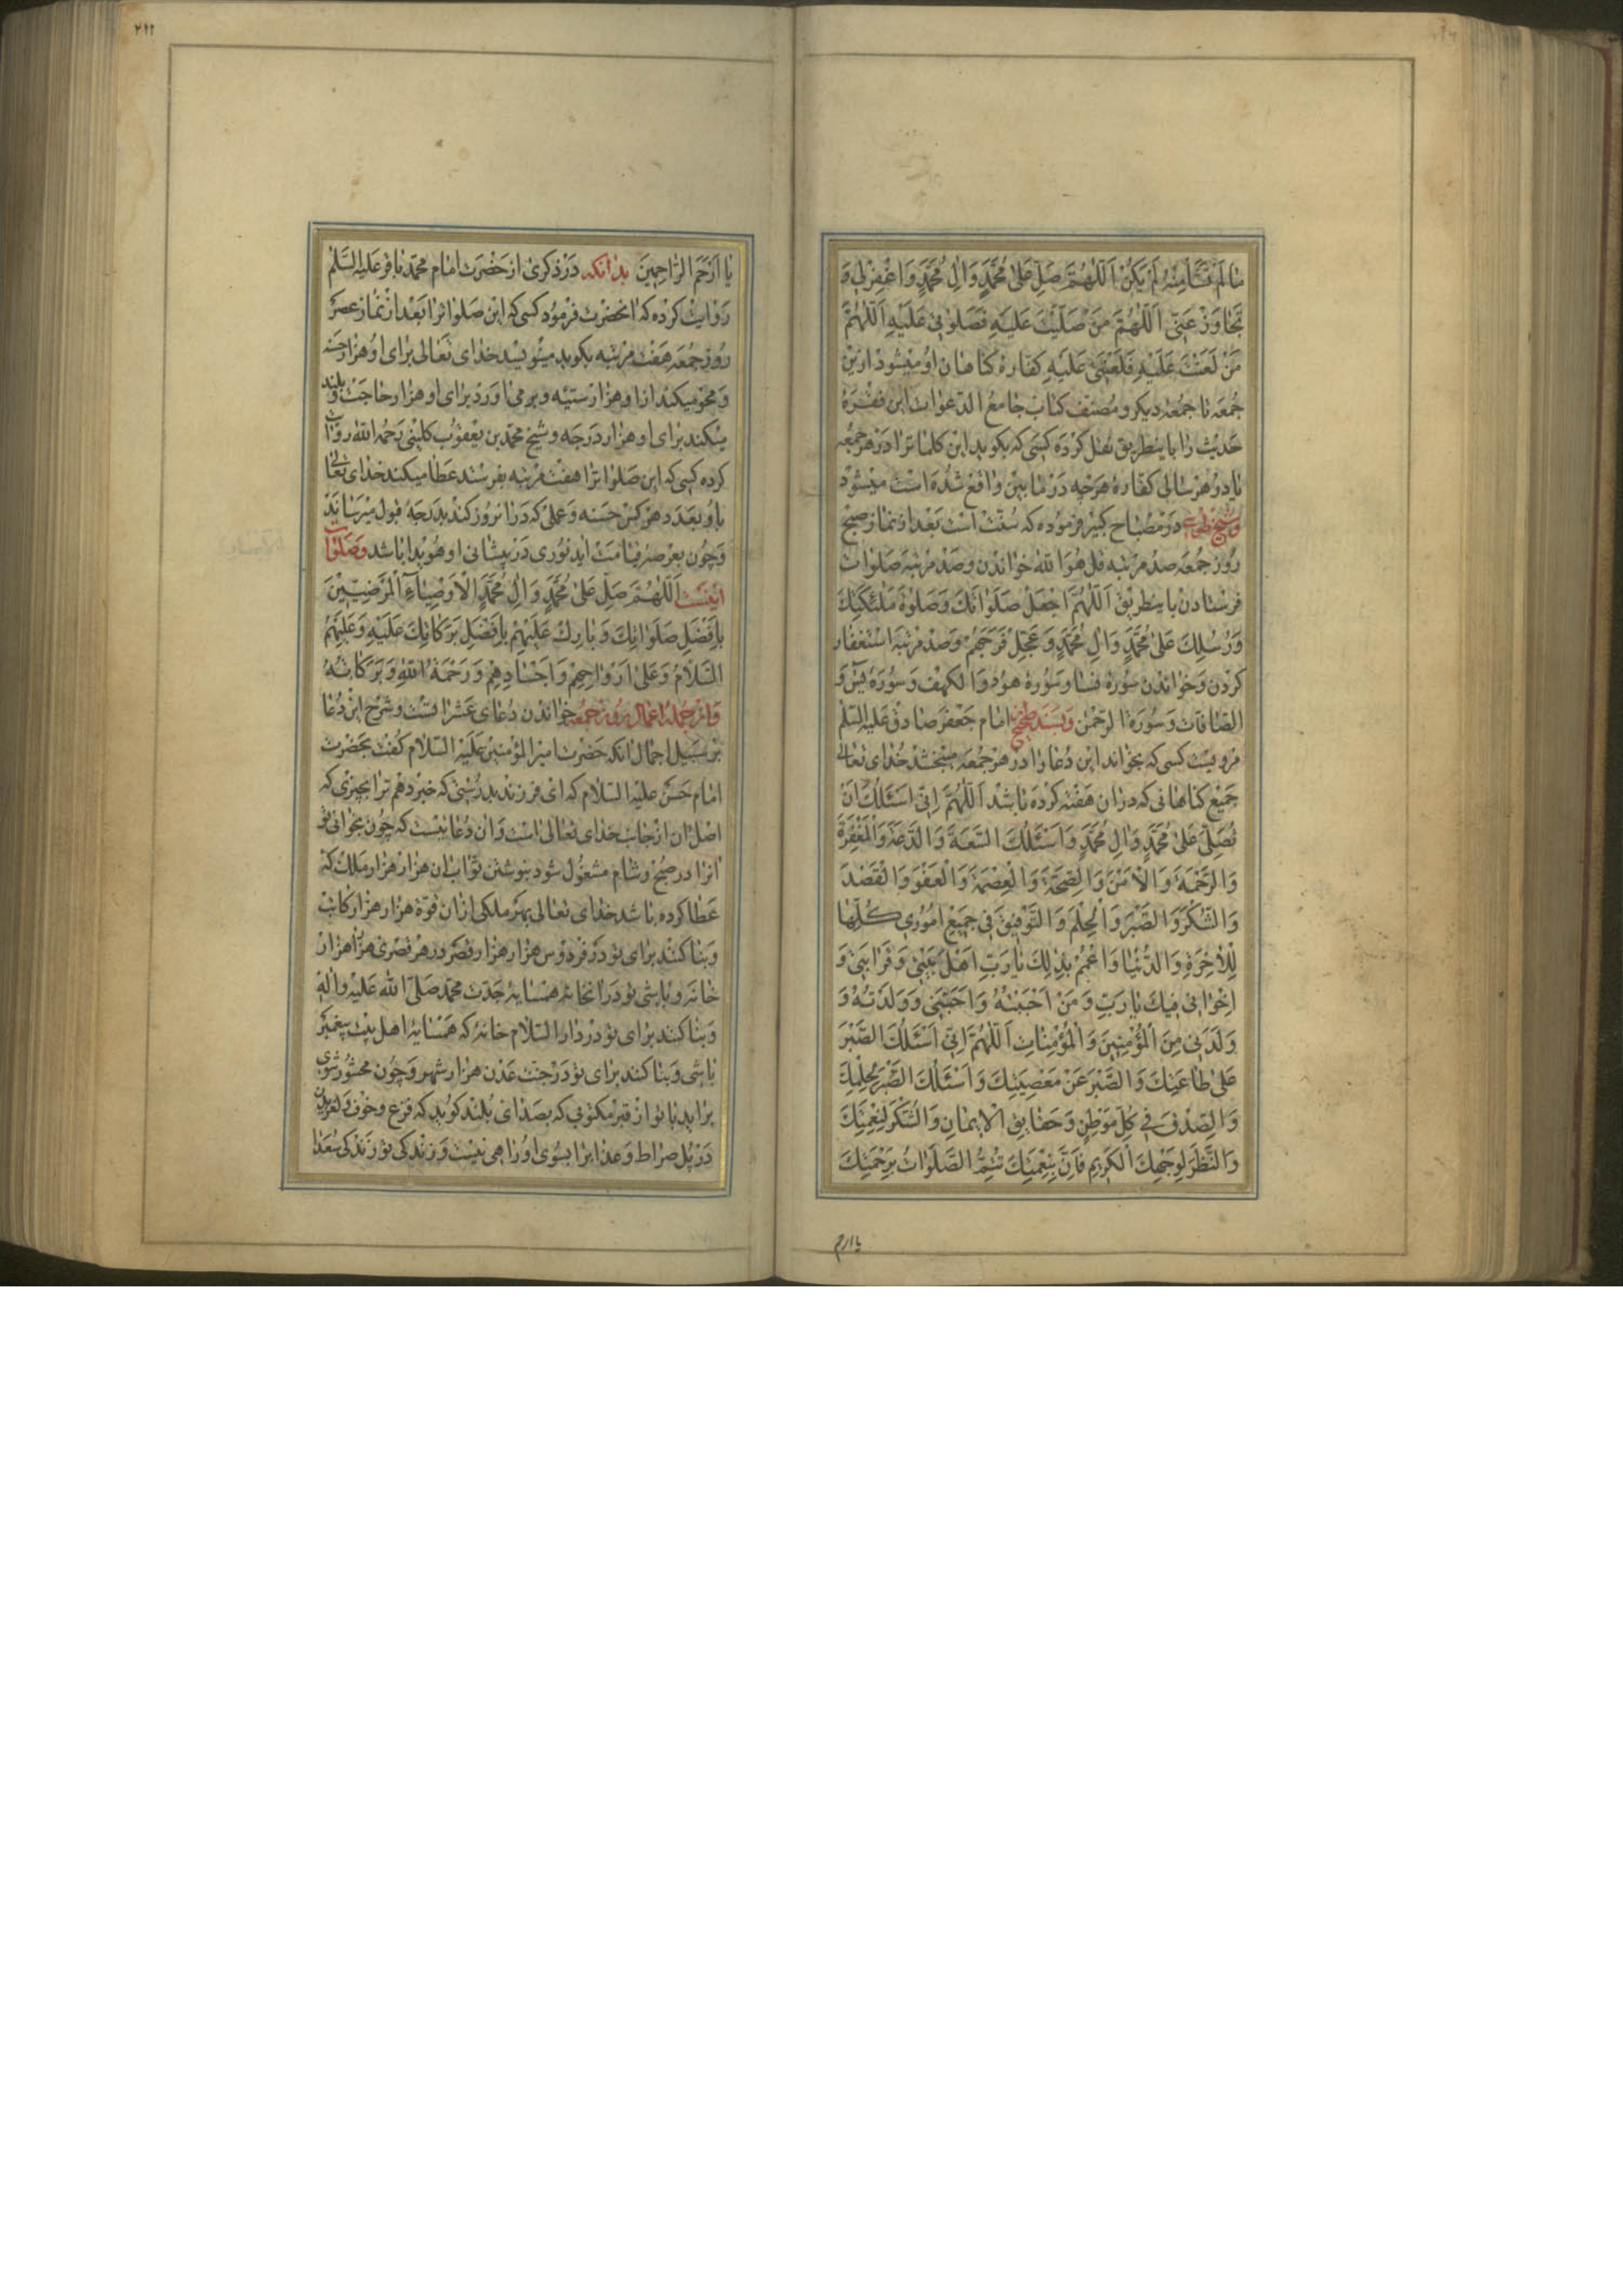 مٰا لَمْ تَشَأْ مِنْهُ لَمْ يَكُنْ اَللّٰهُمَّ صَلِّ عَلىٰ مُحَمَّدٍ وَاٰلِ مُحَمَّدٍ وَاغْفِرْلي وَ
تَجٰاوَزْ عَنّي اَللّٰهُمَّ مَنْ صَلَّيْتَ عَلَيْهِ فَصَلَوٰتي عَلَيْهِ اَللّٰهُمَّ
مَنْ لَعَنْتَ عَلَيْهِ فَلَعْنَتي عَلَيْهِ كفاره كناهان او ميشود ازين
جمعه تا جمعه ديكر ومصنف كتاب جامع الدعوات اين فقره
حديث را باينطريق نقل كرده كسى كه بكويد اين كلماترا در هر جمعه
يا در هر سالى كفاره هرچه در مابين واقع شده است ميشود
وشيخ طوسى در مصباح كبير فرموده كه سنت است بعد از نماز صبح
روز جمعه صد مرتبه قل هو الله خواندن وصد مرتبه صلوات
فرستادن باينطريق اَللّٰهُمَّ اجْعَلْ صَلَوٰاتَكَ وَصَلٰوةَ مَلٰئِكَتِكَ
وَرُسُلِكَ عَلىٰ مُحَمَّدٍ وَاٰلِ مُحَمَّدٍ وَعَجِّلْ فَرَجَهُمْ وصد مرتبه استغفار
كردن وخواندن سورة نسا وسورة هود والكهف وسورة يس و
الصافات وسورة الرحمن وبسند صحيح امام جعفر صادق عليه السلم
مرويست كسى كه بخواند اين دعا را در هر جمعه ميبخشد خداى تعالى
جميع كناهانى كه دران هفته كرده باشد اَللّٰهُمَّ اِنّي اَسْئَلُكَ اَنْ
تُصَلِّيَ عَلىٰ مُحَمَّدٍ وَاٰلِ مُحَمَّدٍ وَاَسْئَلُكَ السَّعَةَ وَالدَّعَةَ وَالْمَغْفِرَةَ
وَالرَّحْمَةَ وَالْاَمْنَ وَالصِّحَّةَ وَالْعِصْمَةَ وَالْعَفْوَ وَالْقَصْدَ
وَالشُّكْرَ وَالصَّبْرَ وَالْحِلْمَ وَالتَّوْفيقَ في جَميعِ اُمُوري كُلِّهٰا
لِلْاٰخِرَةِ وَالدُّنْيٰا وَاعْمُمْ بِذٰلِكَ يٰا رَبِّ اَهْلَ بَيْتي وَقَرٰابَتي وَ
اِخْوٰاني فيكَ يٰا رَبِّ وَمَنْ اَحْبَبْتُهُ وَاَحَبَّني وَوَلَدْتُهُ وَ
وَلَدَني مِنَ الْمُؤْمِنينَ وَالْمُؤْمِنٰاتِ اَللّٰهُمَّ اِنّي اَسْئَلُكَ الصَّبْرَ
عَلىٰ طٰاعَتِكَ وَالصَّبْرَ عَنْ مَعْصِيَتِكَ وَاَسْئَلُكَ الصَّبْرَ لِحِلْمِكَ
وَالصِّدْقَ في كُلِّ مَوْطِنٍ وَحَقٰايِقَ الْايمٰانِ وَالشُّكْرَ لِنِعْمَتِكَ
وَالنَّظَرَ لِوَجْهِكَ الْكَريمِ فَاِنَّ بِنِعْمَتِكَ تُتِمُّ الصَّلَوٰاتُ بِرَحْمَتِكَ
يا ارحم
٢١١
يٰا اَرْحَمَ الرّٰاحِمينَ بدانكه در ذكرى از حضرت امام محمد باقر عليه السلم
روايت كرده كه انحضرت فرمود كسى كه اين صلواترا بعد از نماز عصر
روز جمعه هفت مرتبه بكويد مينويسد خداى تعالى براى او هزار حسنه
ومحو ميكند ازاو هزار سيئه وبرمى اورد براى او هزار حاجت وبلند
ميكند براى او هزار درجه وشيخ محمد بن يعقوب كلينى رحمه الله روايت
كرده كسى كه اين صلواترا هفت مرتبه بفرستد عطا ميكند خداى تعالى
باو بعدد هر كس حسنه وعملى كه درانروز كند بدرجه قبول ميرساند
وچون بعرصه قيامت ايد نورى در پيشانى او هويدا باشد وصلوات
اينست اَللّٰهُمَّ صَلِّ عَلىٰ مُحَمَّدٍ وَاٰلِ مُحَمَّدٍ الْاَوْصِيٰآءِ الْمَرْضِيّينَ
بِاَفْضَلِ صَلَوٰاتِكَ وَبٰارِكْ عَلَيْهِمْ بِاَفْضَلِ بَرَكٰاتِكَ عَلَيْهِ وَعَلَيْهِمُ
السَّلٰامُ وَعَلىٰ اَرْوٰاحِهِمْ وَاَجْسٰادِهِمْ وَرَحْمَةُ اللهِ وَبَرَكٰاتُهُ
وازجمله اعمال روز جمعه خواندن دعاى عشراتست وشرح اين دعا
بر سبيل اجمال انكه حضرت امير المؤمنين عليه السلام كفت بحضرت
امام حسن عليه السلام كه اى فرزند بدرستى كه خبر دهم ترا بچيزى كه
اصل ان از جانب خداى تعالى است وان دعائيست كه چون بخوانى تو
انرا در صبح وشام مشغول شود بنوشتن ثواب ان هزار هزار ملك كه
عطا كرده باشد خداى تعالى بهر ملكى ازان قوة هزار هزار كاتب
وبنا كنند براى تو در فردوس هزار هزار قصر ودر هر قصرى هزار هزار
خانه وباشى تو درانخانه همسايه جدت محمد صلى الله عليه واله
وبنا كنند براى تو در دار السلام خانه كه همسايه اهل بيت پيغمبر
باشى وبنا كنند براى تو در جنت عدن هزار شهر وچون محشور شوى
برايد با تو از قبر مكتوبى كه بصداى بلند كويد كه فزع وخوف ولغزيدن
در پل صراط وعذابرا بسوى او راهى نيست وزندكى تو زندكى سعدا